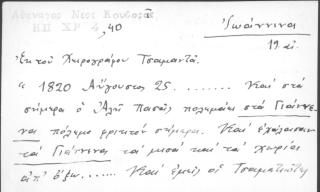 Ἀθηναγορ Νεος Κουβαρᾶς
ΗΠ ΧΡ 4, 40
Ἰωάννινα
19 αἰ.
Ἐκ τοῦ Χειρογράφου Τσαμαντᾶ.
« 1820 Αὔγουστος 25. ....... Καὶ στὰ
σήμερα ὁ Ἀλῆ Πασᾶς πολεμάει στὰ Γιάννε-
να πόλεμο φρικτον σήμερα. Καὶ ἐχάλασαν
τὰ Γιάννινα τὰ μισὰ καὶ τὰ χωρία
ἀπ' ἔξω...... Καὶ ἐμεῖς οἱ Τσαματιῶτες